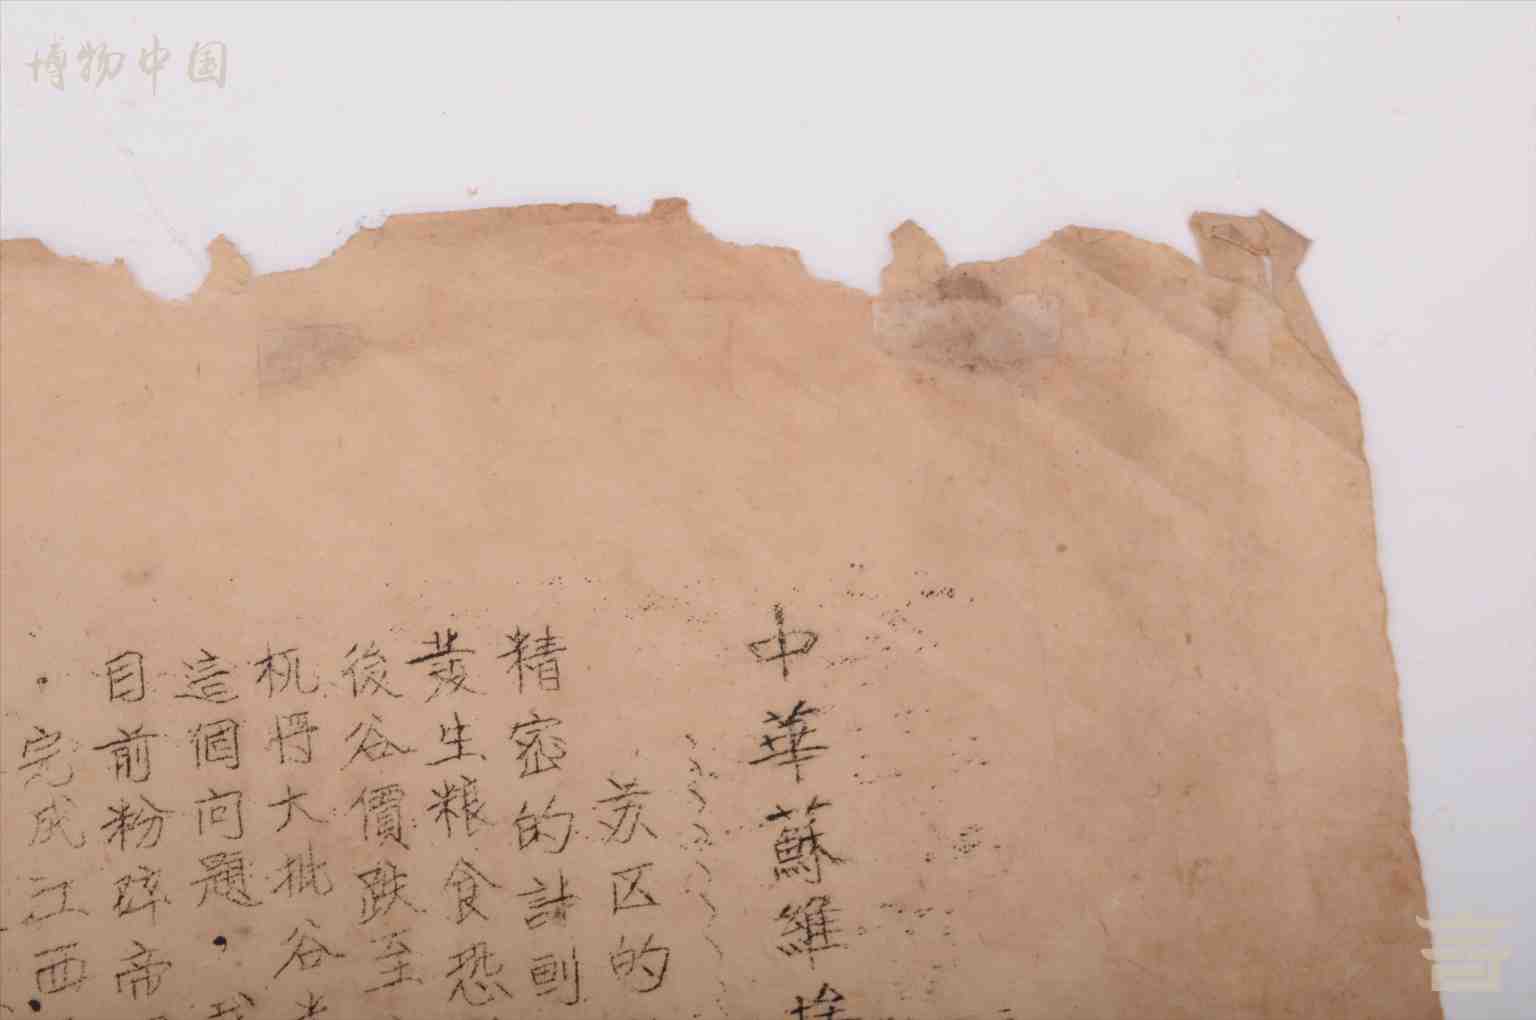 博物中国
中華蘇維埃
苏区的
精密的計劃
發生粮食恐
後谷價跌至
机將大批谷
這個问題．我
目前粉碎帝
．完成江西